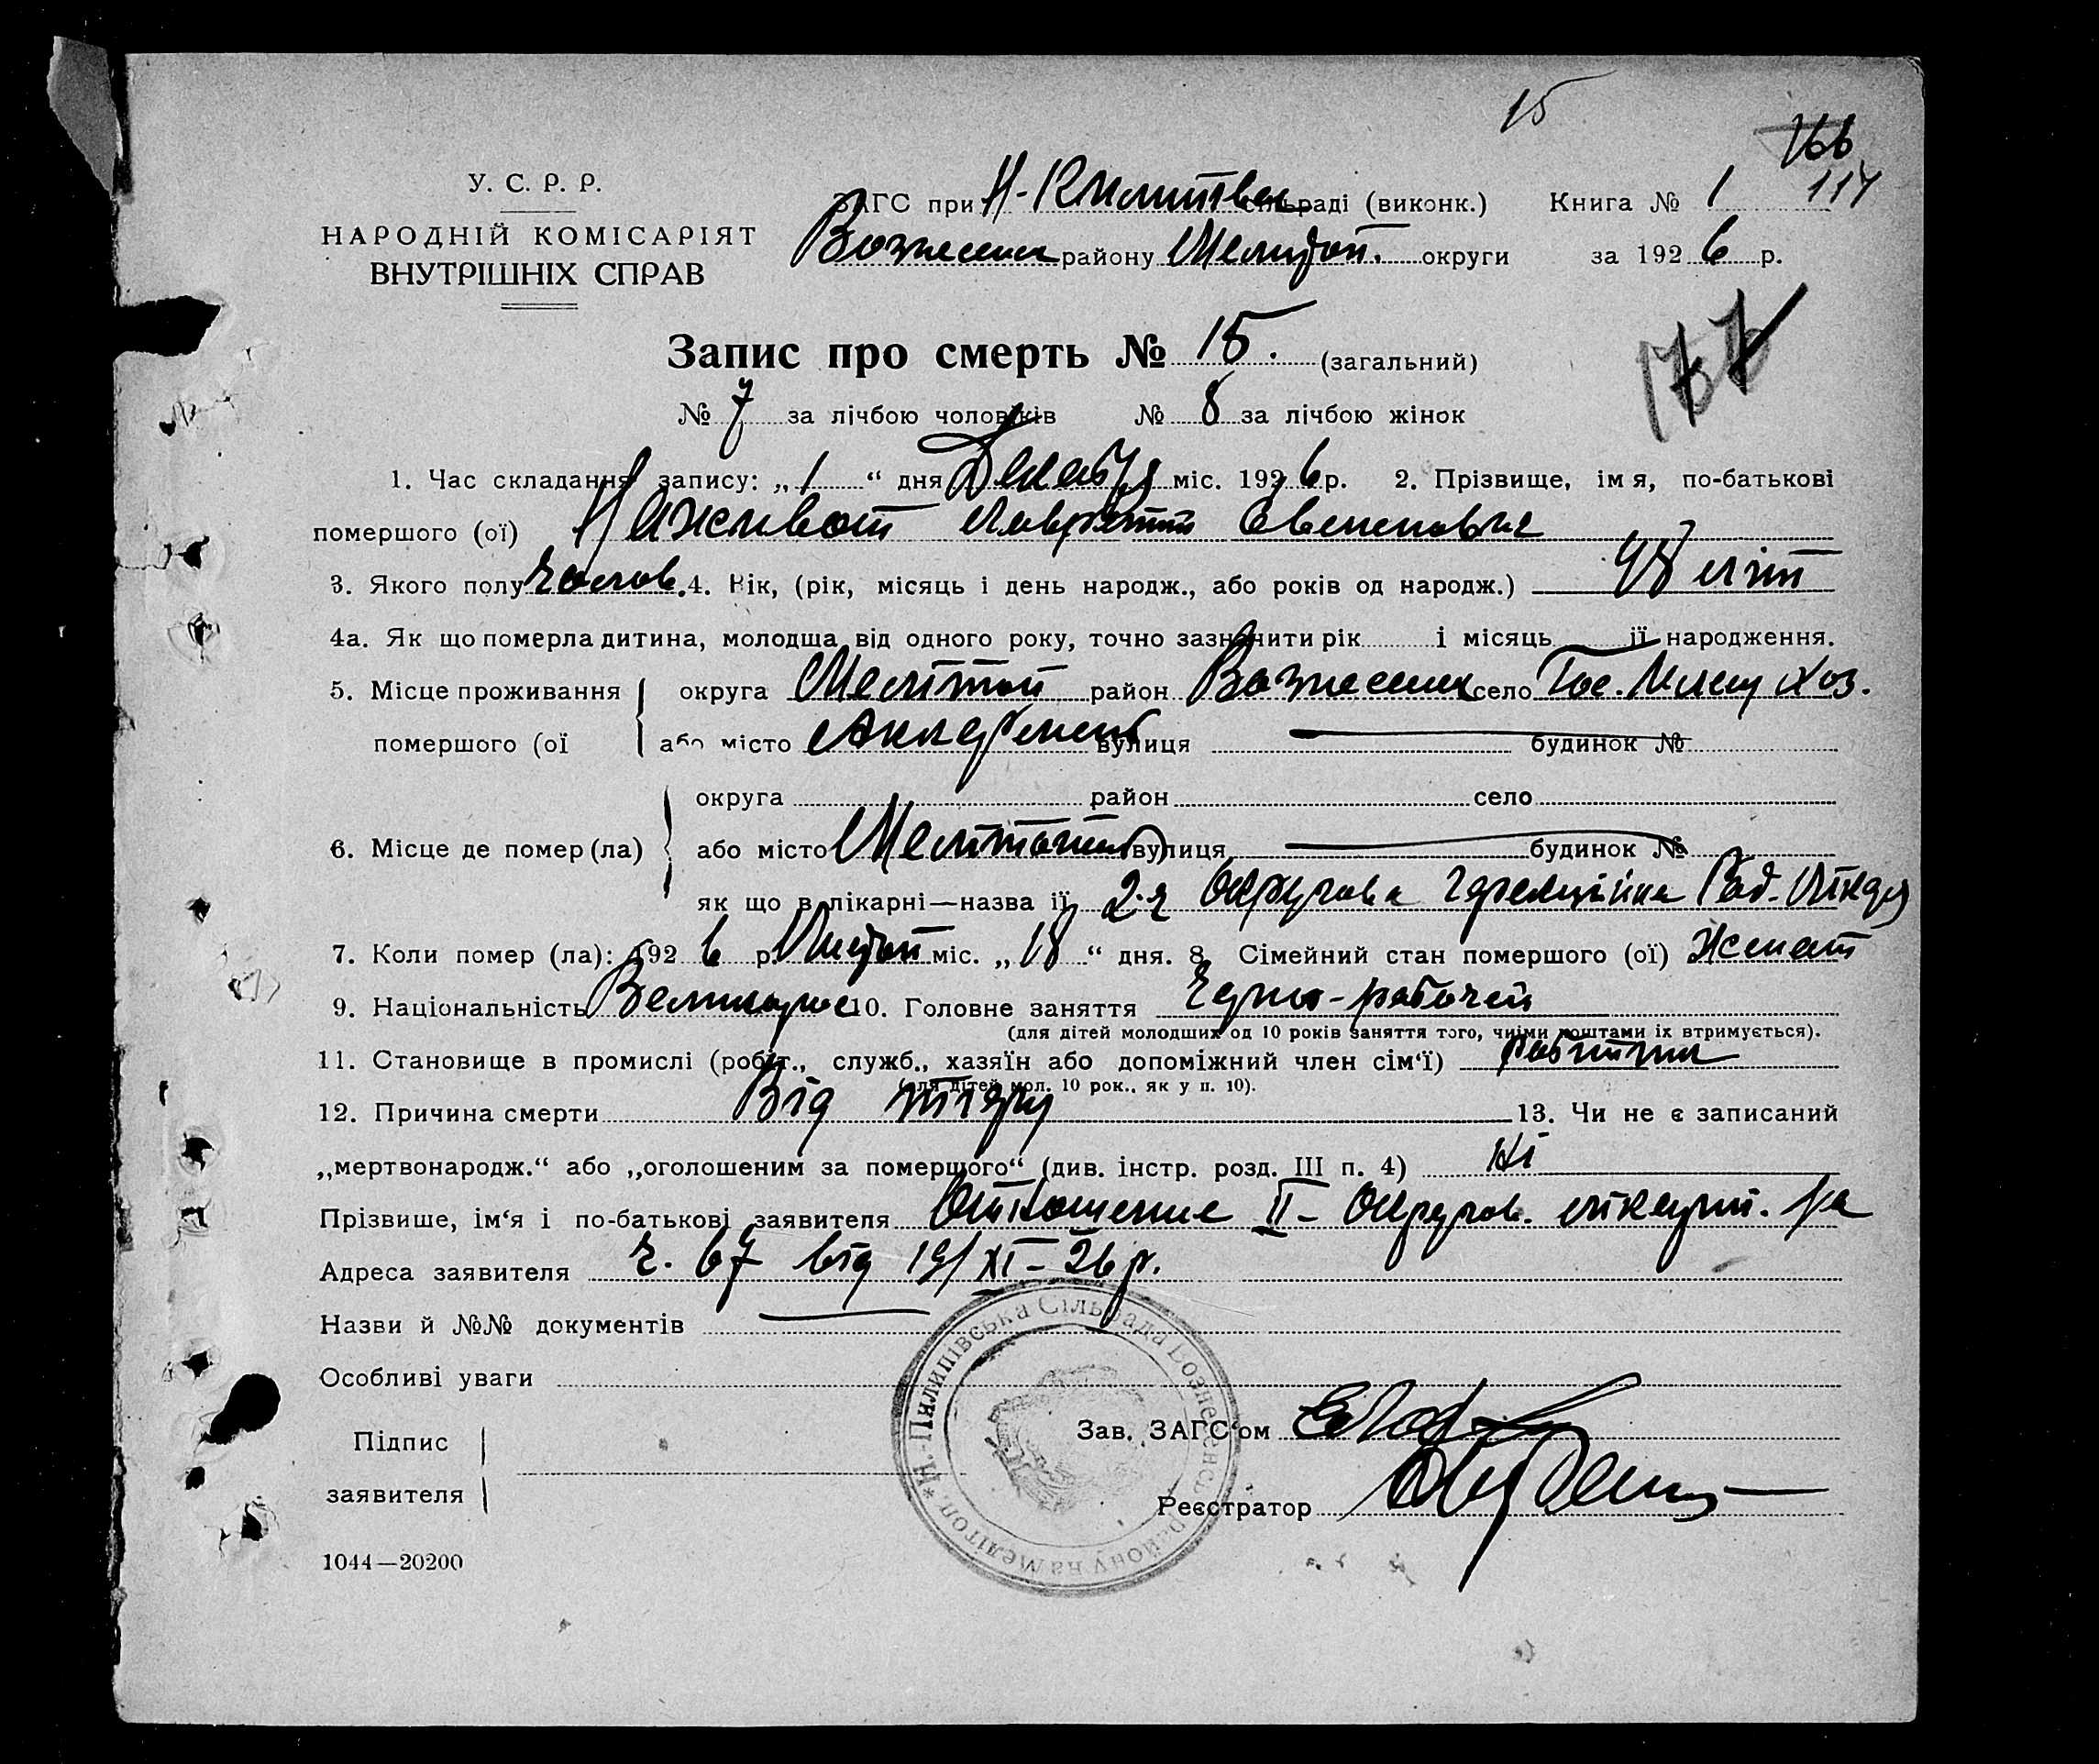 15
166
114
У. С. Р. Р.
НАРОДНІЙ КОМІСАРІЯТ
ВНУТРІШНІХ СПРАВ
ЗАГС при Н- сільраді (виконк.) Книга № 1
Вознесенск району Мелитоп. округи за 1926 р.
Запис про смерть № 15. (загальний)
177
№ 7 за лічбою чоловіків № 8 за лічбою жінок
1. Час складання запису: „1“ дня Декабря міс. 1926 р. 2. Прізвище, ім я, по-батькові
помершого (ої)
3. Якого полу чолов. 4. Вік, (рік, місяць і день народж., або років од народж.) 48 літ
4а. Як що померла дитина, молодша від одного року, точно зазначити рік і місяць її народження.
5. Місце проживання округа Мелітоп район Вознесенск село Гос. хоз.
помершого (ої або місто вулиця будинок №
округа район село
6. Місце де помер (ла) або місто Мелітопіль вулиця будинок №
як що в лікарні—назва її 2-а Округова Рад. Лікарня
7. Коли помер (ла): 1926 р. міс. „18“ дня. 8. Сімейний стан помершого (ої) Женат
9. Національність Великорос 10. Головне заняття Черно-рабочей
(для дітей молодших од 10 років заняття того, чиїми коштами їх втримується).
11. Становище в промислі (робіт., служб., хазяїн або допоміжний член сім‘ї) робітник
(для дітей мол. 10 рок., як у п. 10).
12. Причина смерти Від тифу 13. Чи не є записаний
„мертвонародж.“ або „оголошеним за помершого“ (див. інстр. розд. III п. 4) Ні
Прізвище, ім‘я і по-батькові заявителя Отношение II- Округов. лікарні. за
Адреса заявителя ч. 67 від 19/XI-26 р.
Назви й №№ документів
Особливі уваги
Підпис
заявителя
Зав. ЗАГС‘ом
Реєстратор
* Н.-Пилипівська Сільрада Вознесенськ. району на Мелітоп.
1044—20200